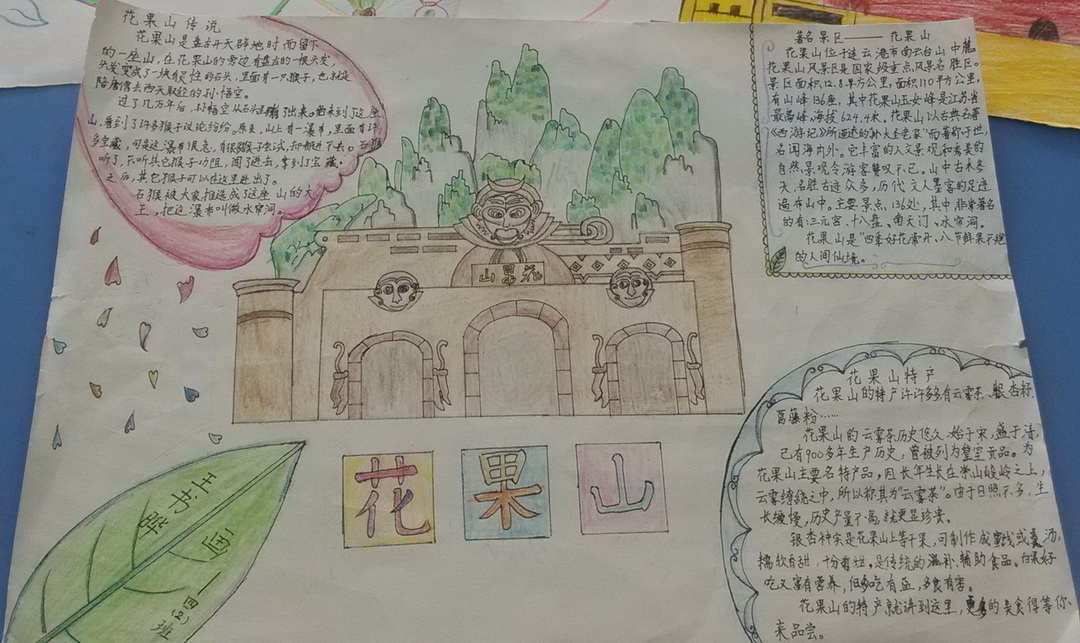 花果山传说
花果山是盘古开天辟地时而留下
的一座山，在花果山的旁边有盘古的一根头发，
头发变成了一块很怪的石头，里面有一只猴子，也就是
陪唐僧去西天取经的孙悟空。
过了几万年后，孙悟空从石头里出来，他来到了这座
山，看到了许多猴子议论纷纷。原来，山上有一瀑布，里面有许
多宝藏，可是这瀑布很急，有很多猴子尝试，却都进不去。石猴
听了，不听其它猴子劝阻，闯了进去，拿到了宝藏。
之后，其它猴子可以在这里进出了。
石猴被大家推选成了这座山的大
王，把这瀑布叫做水帘洞。
著名景区——花果山
花果山位于连云港市南云台山中麓。
花果山风景区是国家级重点风景名胜区。
景区面积12.8平方公里，面积110平方公里，
有山峰136座，其中花果山玉女峰是江苏省
最高峰，海拔624.4米。花果山以古典名著
《西游记》所描述的“孙大圣老家”而著称于世，
名闻海内外。它丰富的人文景观和秀美的
自然景观令游客赞叹不已。山中古木参
天，名胜古迹众多，历代文人墨客的足迹
遍布山中。主要景点，136处，其中非常著名
的有：三元宫、十八盘、南天门、水帘洞。
花果山是“四季好花常开、八节鲜果不绝”
的人间仙境。
山果花
花果山
花果山特产
花果山的特产许许多多有云雾茶、银杏籽、
葛藤粉……
花果山的云雾茶历史悠久，始于宋，盛于清，
已有900多年生产历史，曾被列为皇室贡品。为
花果山主要名特产品，因长年生长在崇山峻岭之上，
云雾缭绕之中，所以称其为“云雾茶”。由于日照不多，生
长缓慢，历史产量不高，就更显珍贵。
银杏种实是花果山上等干果，可制作成蜜饯或羹汤，
糯软香甜，十分香甜，是传统的滋补、辅助食品。白果好
吃又富有营养，但少吃有益，多食有害。
花果山的特产就讲到这里，更多的美食得等你
来品尝。
王书晔
国一四(2)班